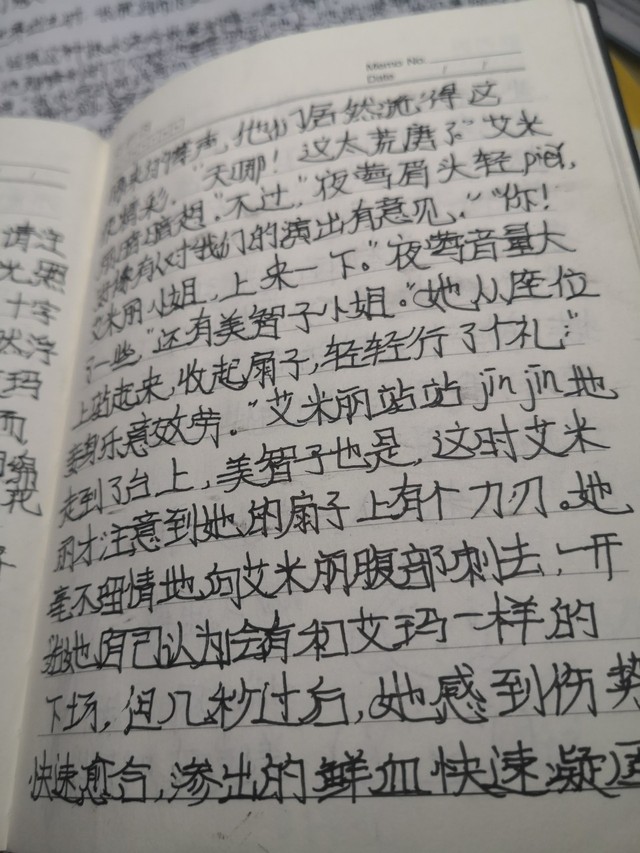 Memo No.
Date / /
的掌声，他们居然觉得这
很精彩。“天哪！这太荒唐了”艾米
丽暗暗想。“不过，”夜莺眉头轻piě，
好像有人对我们的演出有意见，”“你！
艾米丽小姐，上来一下。”夜莺音量大
了一些，“还有美智子小姐。”她从座位
上站起来，收起扇子，轻轻行了个礼：
妾身乐意效劳。”艾米丽站站jīn jīn地
走到了台上，美智子也是，这时艾米
丽才注意到她的扇子上有个刀刃。她
毫不留情地向艾米丽腹部刺去，一开
始她自己认为会有和艾玛一样的
下场，但几秒过后，她感到伤势
快速愈合，渗出的鲜血快速凝
请注
光
十字
然浮
玛
而
花